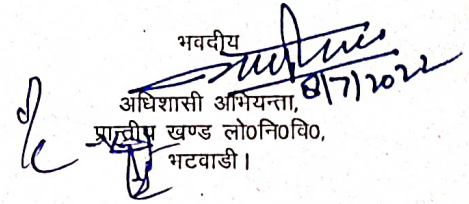 भवदीय
8/7/2022
अधिशासी अभियन्ता,
प्रान्तीय खण्ड लो०नि०वि०,
भटवाडी।